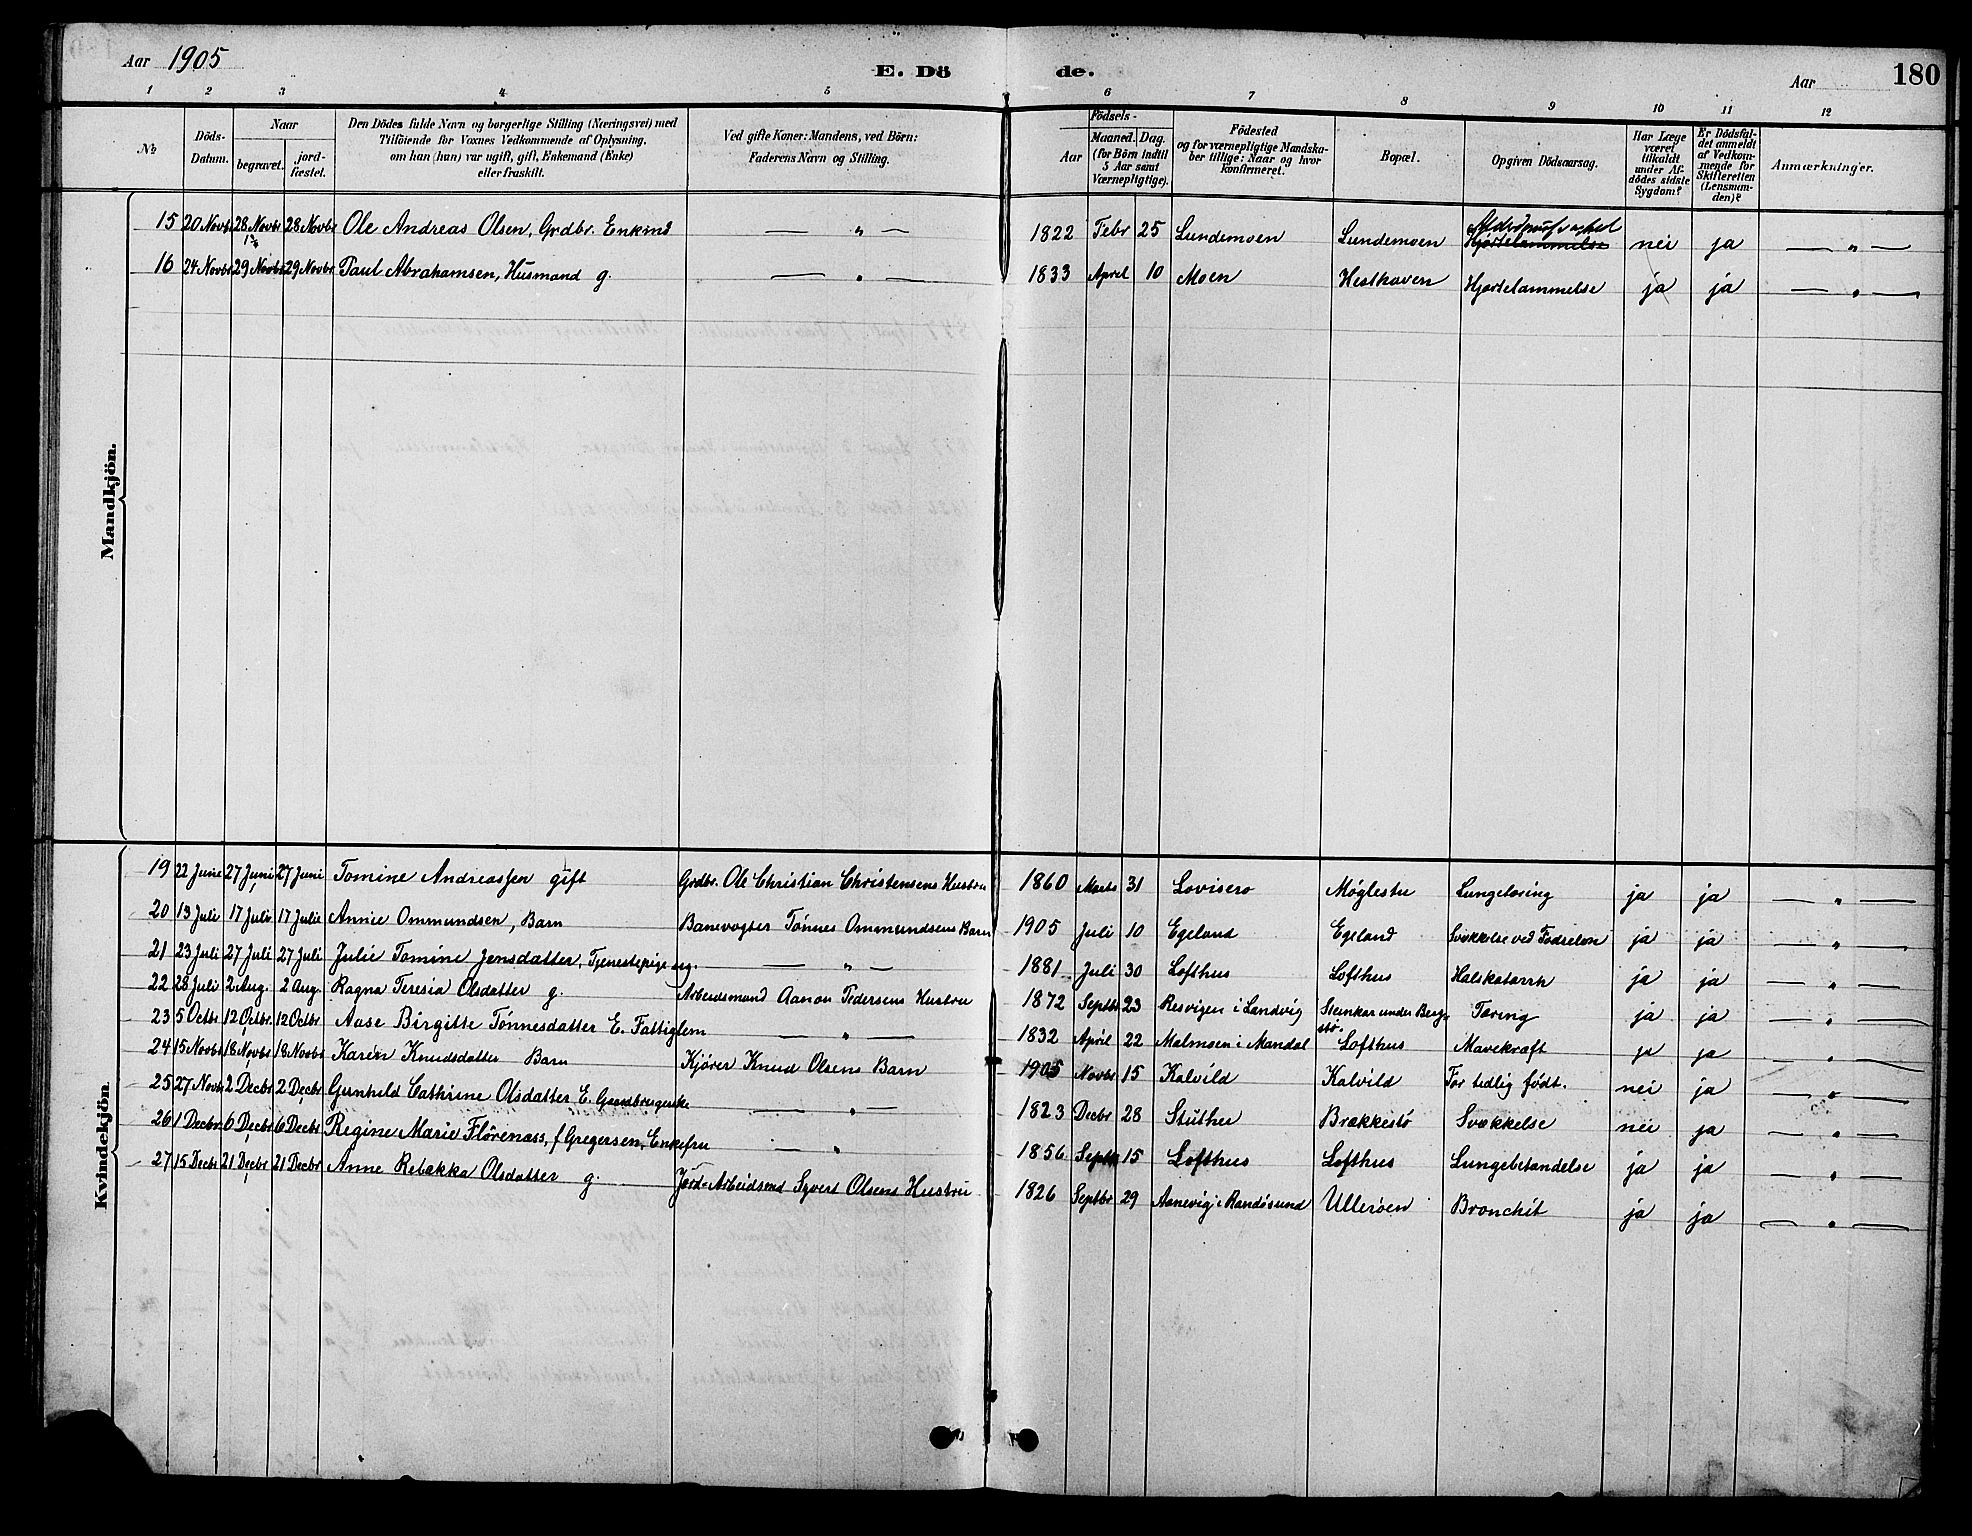 Aar 1905
E. Dö de.
Aar
180
1 2 3 4 5 6 7 8 9 10 11 12
No
Döds-Datum.
Naar
begravet.
jord-fæstet.
Den Dödes fulde Navn og borgerlige Stilling (Næringsvei) med
Tilföiende for Voxnes Vedkommende af Oplysning,
om han (hun) var ugift, gift, Enkemand (Enke)
eller fraskilt.
Ved gifte Koner: Mandens, ved Börn:
Faderens Navn og Stilling.
Födsels-
Aar
Maaned. Dag.
(for Börn indtil
5 Aar samt
Værnepligtige).
Födested
og for værnepligtige Mandska-
ber tillige: Naar og hvor
konfirmeret.
Bopæl.
Opgiven Dödsaarsag.
Har Læge
været
tilkaldt
under Af-
dödes sidste
Sygdom?
Er Dödsfal-
det anmeldt
af Vedkom-
mende for
Skifteretten
(Lensman-
den)?
Anmærkninger.
Mandkjön.
15 20 Novbr 28 Novbr 28 Novbr Ole Andreas Olsen, Grdbr. Enkmd — „ — 1822 Febr 25 Lundemoen Lundemoen Hjertelammelse nei ja — „ —
16 24 Novbr 29 Novbr 29 Novbr Paul Abrahamsen, Husmand g. — „ — 1833 April 10 Moen Hesthaven Hjertelammelse ja ja — „ —
Kvindekjön.
19 22 Juni 27 Juni 27 Juni Tomine Andreassen gift Grdbr. Ole Christian Christensens Hustru 1860 Marts 31 Lovisero Møglestu Lungetæring ja ja — „ —
20 13 Juli 17 Juli 17 Juli Annie Ommundsen, Barn Banevogter Tønnes Ommundsens Barn 1905 Juli 10 Egeland Egeland Svækkelse ved Fødselen ja ja — „ —
21 23 Juli 27 Juli 27 Juli Julie Tomine Jensdatter, Tjenestepige ug. — „ — 1881 Juli 30 Lofthus Lofthus Halskatarrh ja ja — „ —
22 28 Juli 2 Aug. 2 Aug. Ragna Teresia Olsdatter g. Arbeidsmand Aanon Pedersens Hustru 1872 Septbr 23 Resvigen i Landvig Steinkar under Bergstø. Tæring ja ja — „ —
23 5 Octbr 12 Octbr. 12 Octbr Aase Birgitte Tønnesdatter E. Fattiglem — „ — 1832 April 22 Malmoen i Mandal Lofthus Mavekræft ja ja — „ —
24 15 Novbr 18 Novbr 18 Novbr Karen Knudsdatter Barn Kjører Knud Olsens Barn 1905 Novbr 15 Kalvild Kalvild For tidlig født. nei ja — „ —
25 27 Novbr 2 Decbr 2 Decbr Gunhild Cathrine Olsdatter E. Gaardbrugerske — „ — 1823 Decbr 28 Stuthei Brækkestø Svækkelse nei ja — „ —
26 1 Decbr. 6 Decbr 6 Decbr Regine Marie Flørenæss, f Gregersen, Enkefru — „ 1856 Septbr 15 Lofthus Lofthus Lungebetændelse ja ja — „ —
27 15 Decbr 21 Decbr 21 Decbr Anne Rebækka Olsdatter g. Jord-Arbeidsmd Syvert Olsens Hustru. 1826 Septbr 29 Aanevig i Randøsund Ullerøen Bronchit ja ja — „ —